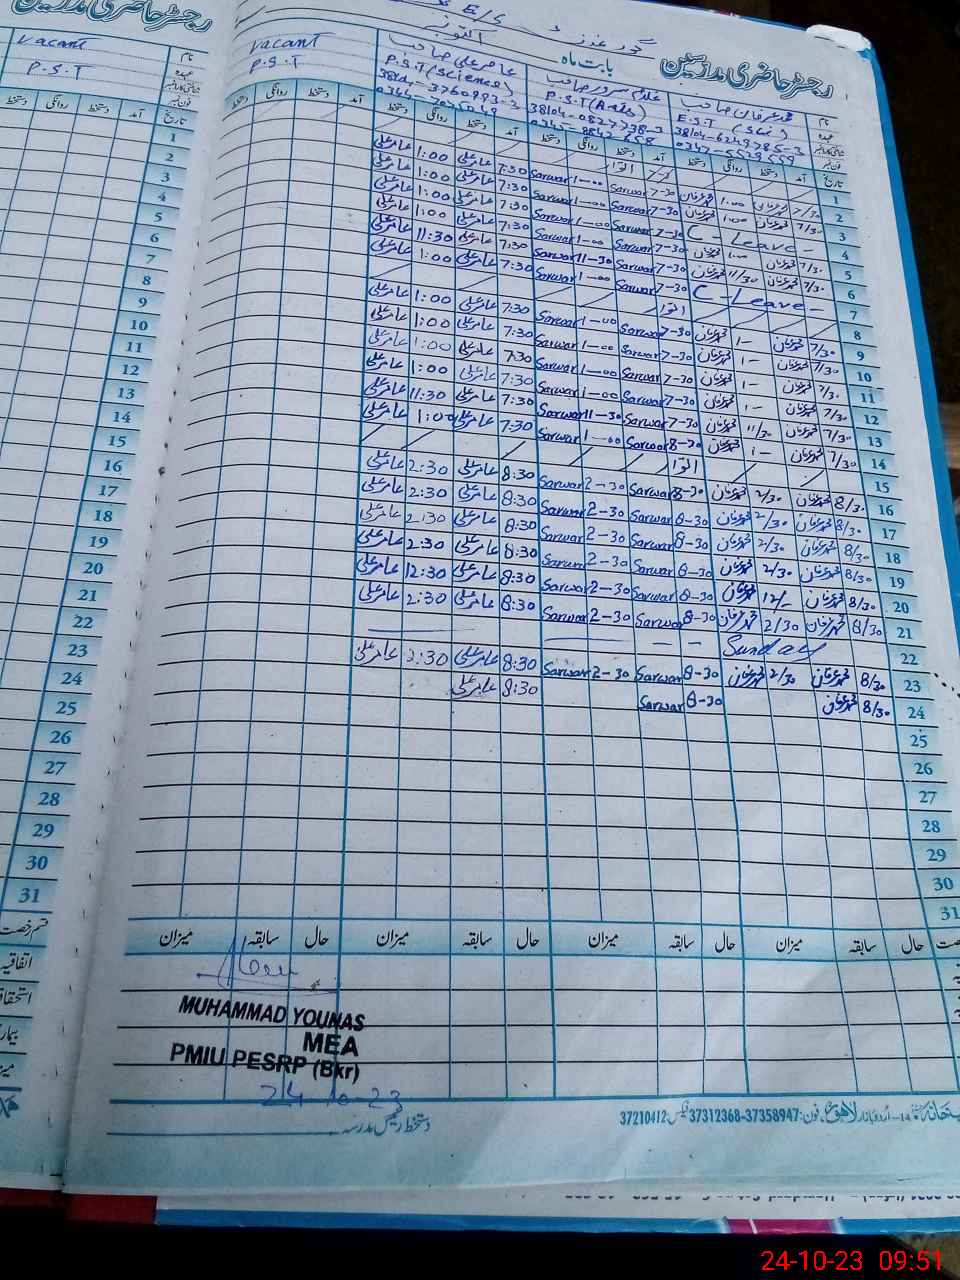 رجسٹر حاضری مدرسین
بابت ماہ اکتوبر
نام
عہدہ
فون نمبر
محمد عرفان صاحب
E.S.T (Sci)
غلام سرور صاحب
P.S.T (Arts)
عامر علی صاحب
P.S.T (Science)
Vacant
P.S.T
Vacant
P.S.T
تاریخ آمد دستخط روانگی دستخط آمد دستخط روانگی دستخط آمد دستخط روانگی دستخط آمد دستخط روانگی دستخط
1 اتوار
2 7/30 محمد عرفان 1.00 محمد عرفان 7-30 Sarwar 1-00 Sarwar 7:30 عامر علی 1:00 عامر علی
3 7/30 محمد عرفان 1.00 محمد عرفان 7-30 Sarwar 1-00 Sarwar 7:30 عامر علی 1:00 عامر علی
4 C - Leave - 7-30 Sarwar 1-00 Sarwar 7:30 عامر علی 1:00 عامر علی
5 7/30 محمد عرفان محمد عرفان 7-30 Sarwar 1-00 Sarwar 7:30 عامر علی 1:00 عامر علی
6 7/30 محمد عرفان 11/30 محمد عرفان 7-30 Sarwar 11-30 Sarwar 7:30 عامر علی 11:30 عامر علی
7 C - Leave - 7-30 Sarwar 1-00 Sarwar 7:30 عامر علی 1:00 عامر علی
8 اتوار
9 7/30 محمد عرفان 1- محمد عرفان 7-30 Sarwar 1-00 Sarwar 7:30 عامر علی 1:00 عامر علی
10 7/30 محمد عرفان 1- محمد عرفان 7-30 Sarwar 1-00 Sarwar 7:30 عامر علی 1:00 عامر علی
11 7/30 محمد عرفان 1- محمد عرفان 7-30 Sarwar 1-00 Sarwar 7:30 عامر علی 1:00 عامر علی
12 7/30 محمد عرفان 1- محمد عرفان 7-30 Sarwar 1-00 Sarwar 7:30 عامر علی 1:00 عامر علی
13 7/30 محمد عرفان 11/30 محمد عرفان 7-30 Sarwar 11-30 Sarwar 7:30 عامر علی 11:30 عامر علی
14 7/30 محمد عرفان 1- محمد عرفان 8-30 Sarwar 1-00 Sarwar 7:30 عامر علی 1:00 عامر علی
15 اتوار
16 8/30 محمد عرفان 2/30 محمد عرفان 8-30 Sarwar 2-30 Sarwar 8:30 عامر علی 2:30 عامر علی
17 8/30 محمد عرفان 2/30 محمد عرفان 8-30 Sarwar 2-30 Sarwar 8:30 عامر علی 2:30 عامر علی
18 8/30 محمد عرفان 2/30 محمد عرفان 8-30 Sarwar 2-30 Sarwar 8:30 عامر علی 2:30 عامر علی
19 8/30 محمد عرفان 2/30 محمد عرفان 8-30 Sarwar 2-30 Sarwar 8:30 عامر علی 2:30 عامر علی
20 8/30 محمد عرفان 12/- محمد عرفان 8-30 Sarwar 2-30 Sarwar 8:30 عامر علی 12:30 عامر علی
21 8/30 محمد عرفان 2/30 محمد عرفان 8-30 Sarwar 2-30 Sarwar 8:30 عامر علی 2:30 عامر علی
22 Sunday - -
23 8/30 محمد عرفان 2/30 محمد عرفان 8-30 Sarwar 2-30 Sarwar 8:30 عامر علی 2:30 عامر علی
24 8/30 محمد عرفان 8-30 Sarwar 8:30 عامر علی
25
26
27
28
29
30
31
حال سابقہ میزان حال سابقہ میزان حال سابقہ میزان حال سابقہ میزان
MUHAMMAD YOUNAS
MEA
PMIU PESRP (Bkr)
24-10-23
دستخط رئیس مدرسہ
14- اردو بازار لاہور، فون: 37358947-37312368 فیکس: 37210412
رجسٹر حاضری مدرسین
تاریخ آمد دستخط روانگی دستخط
1
2
3
4
5
6
7
8
9
10
11
12
13
14
15
16
17
18
19
20
21
22
23
24
25
26
27
28
29
30
31
قسم رخصت
اتفاقیہ
24-10-23 09:51